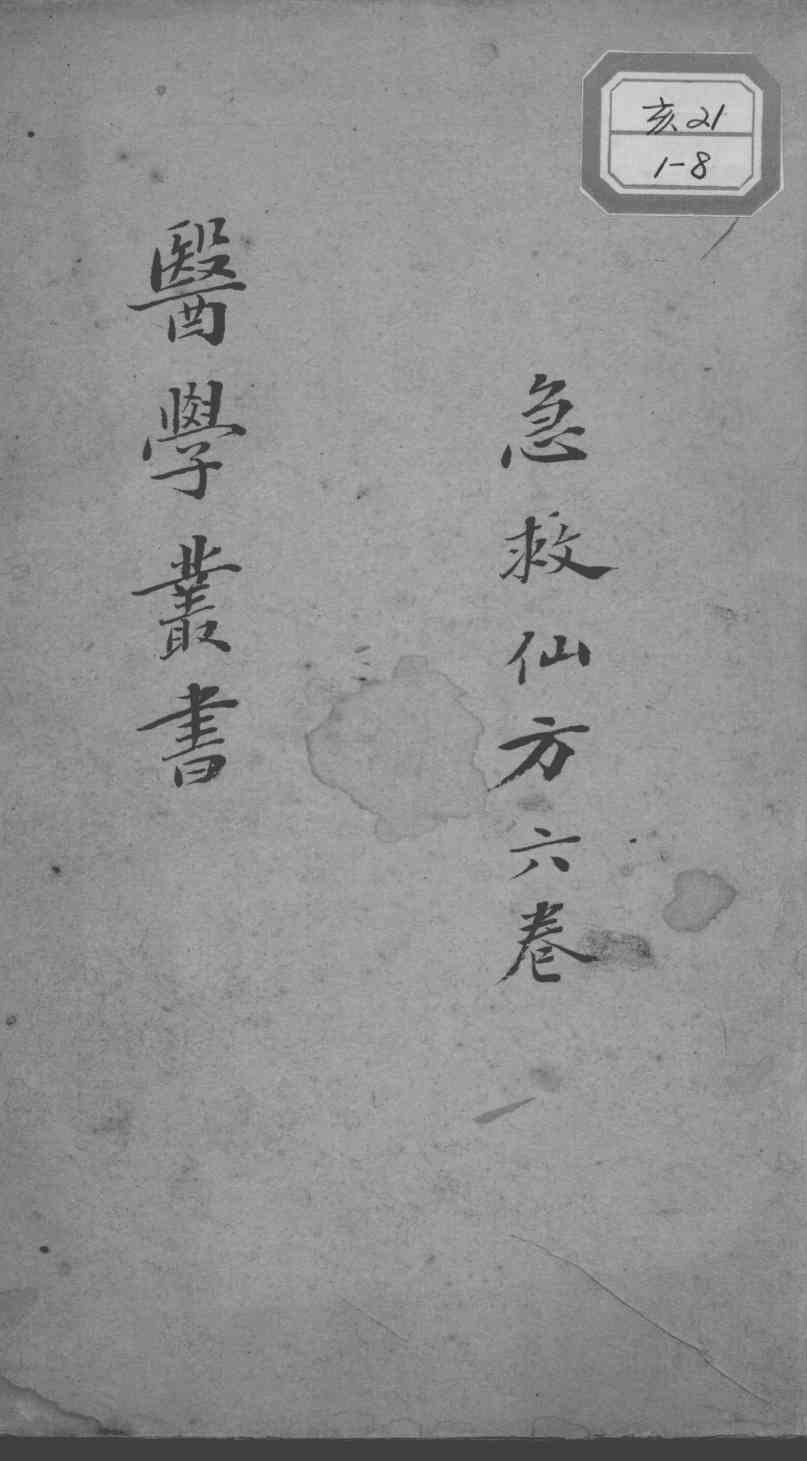 亥21
1-8
急救仙方六卷
醫學叢書